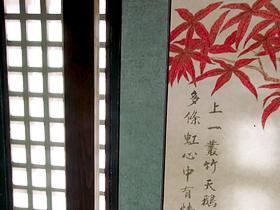 上一叢竹天鵝
多條虹心中有